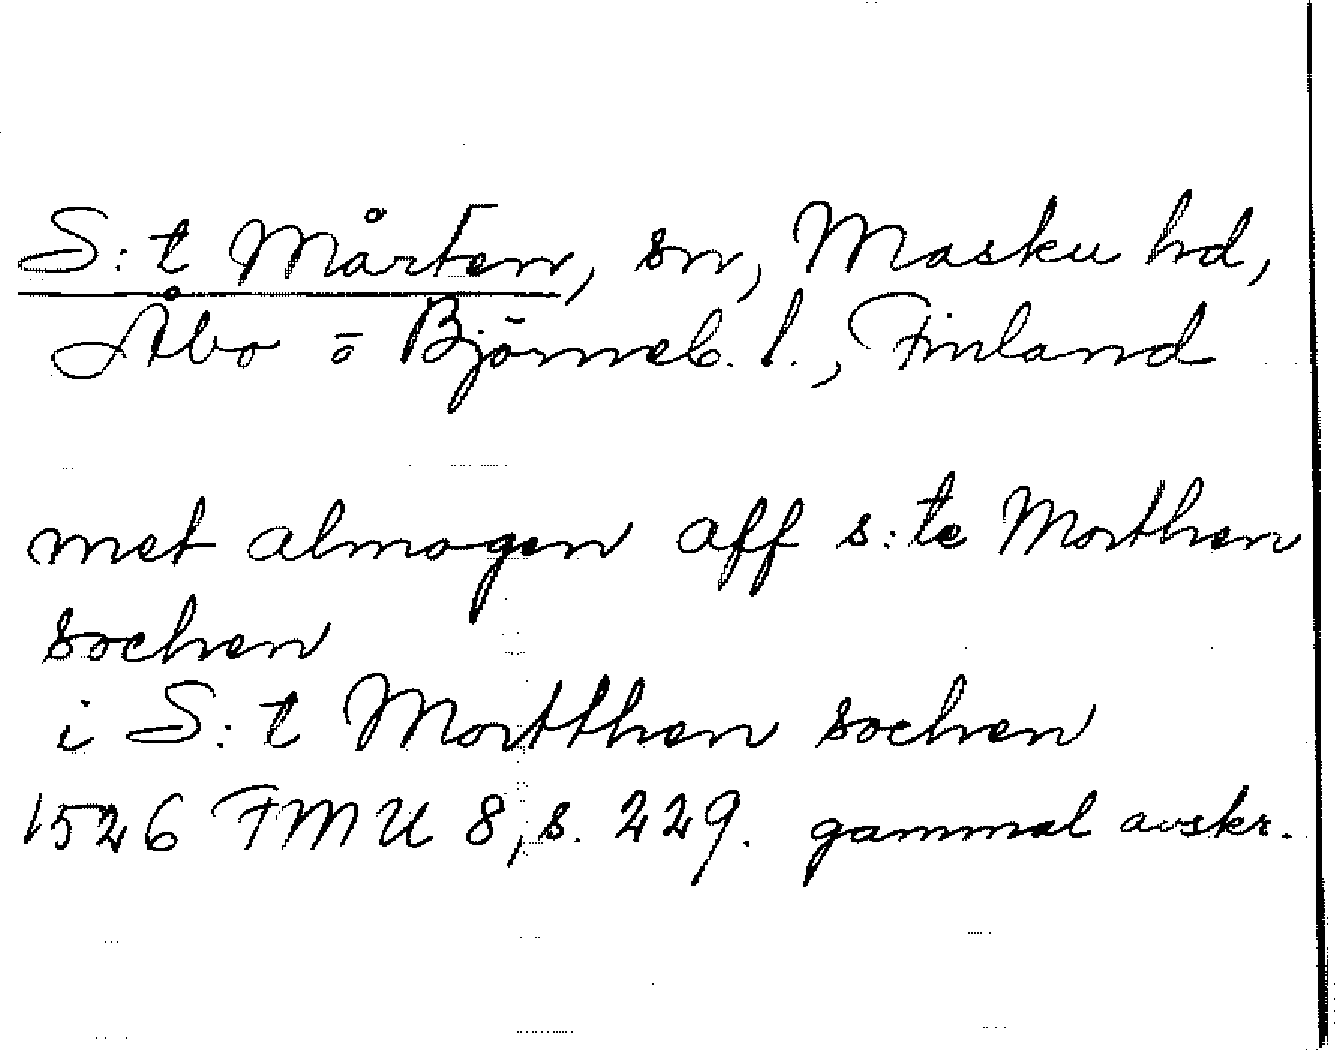 S:t Mårten, sn, Masku hd,
Åbo o Björneb. l., Finland
met almogen aff s:te Morthen
sochen
i S:t Mortthen sochen
1526 FMU 8, s. 229. gammal avskr.